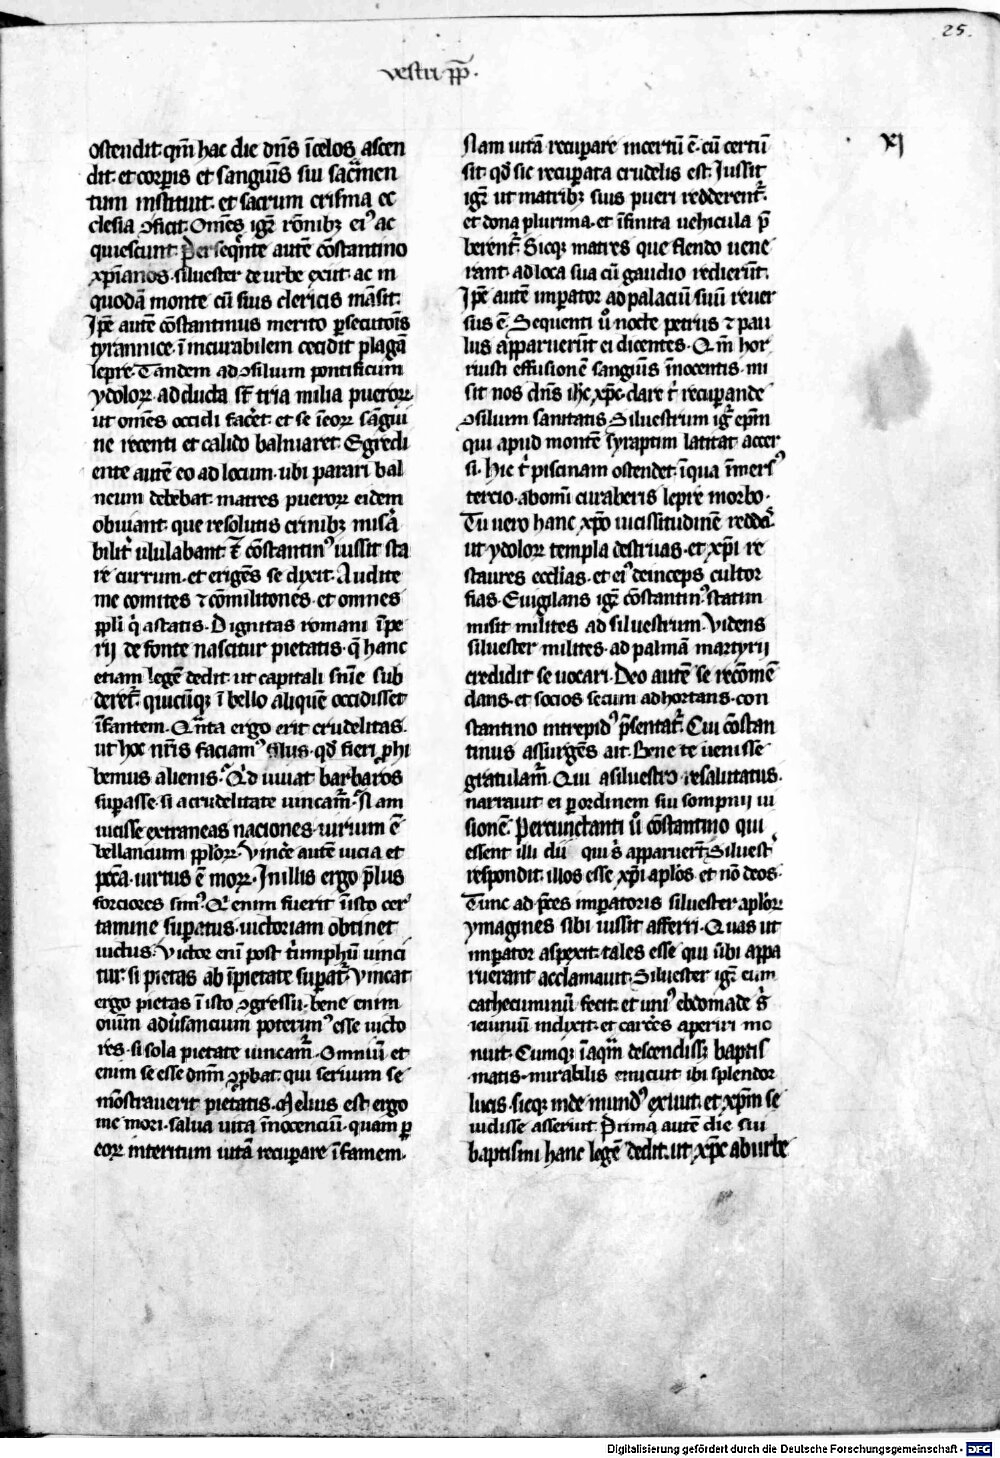 25.
vestri pp̄.
XJ
ostendit· qm̄ hac die dn̄s īcelos ascen
dit· et corpis et sanguīs sui sac̄men
tum instituit· et sacrum crisma ec
clesia ꝯficit· Om̄es igr̄ rōnibꝫ eiꝰ ac
quiescunt· Perseqn̄te autē cōstantino
xp̄ianos· siluester de urbe exiit· ac in
quodā monte cū suis clericis māsit·
Ip̄e autē cōstantinus merito ꝑsecutōis
tyrannice· ī incurabilem cecidit plagā
lepre· Tandem ad ꝯsilium pontificum
ydoloꝝ· adducta sт̄ tria milia pueroꝝ·
ut om̄es occidi facēt· et se īeoꝝ sāgui
ne recenti et calido balniaret· Egredi
ente autē eo ad locum· ubi parari bal
neum debebat· matres pueroꝝ eidem
obuiant· que resolutis crinibꝫ misā
bilit̄ ululabant· Tc̄ cōstantinꝰ iussit sta
re currum· et erigēs se dixit· Audite
me comites ⁊ cōmilitones· et omnes
ppl̄i q̄ astatis· Dignitas romani īpe
rij de fonte nascitur pietatis· q̄ hanc
etiam legē dedit· ut capitali sn̄ie sub
deret̄· quicūqꝫ ī bello aliquē occidisset
īfantem· Qn̄ta ergo erit crudelitas·
ut hoc nr̄is faciamꝰ filiis· qd̄ fieri ꝓhi
bemus alienis· Qd̄ iuuat barbaros
supasse· si a crudelitate uincam̄· Nam
uicisse extraneas naciones· uirium ē
bellancium pploꝝ· Vincē autē uicia et
pccā· uirtus ē moꝝ· In illis ergo p̄lus
forciores sim̄ꝰ· Qi enim fuerit īisto cer
tamine supatus· uictoriam obtinet
uictus· Victor eni post t̄imphū uinci
tur· si pietas ab īpietate supat̄· Vincat
ergo pietas ī isto ꝯgressu· bene enim
oium adūsancium poterimꝰ esse uicto
res· si sola pietate uincam̄· Omniū et
enim se esse dnm̄ ꝯꝓbat· qui seruum se
mōstrauerit pietatis· Melius est ergo
me mori· salua uita īnocenciū· quam ꝑ
eoꝝ interitum uitā recuꝑare īfamem·
Nam uitā recuꝑare incertū ē· cū certū
sit· qd̄ sic recuꝑata crudelis est· Iussit
igr̄ ut matribꝫ suis pueri redderent̄·
et dona plurima· et īfinita uehicula p̄
berent̄· Sicqꝫ matres que flendo uene
rant· ad loca sua cū gaudio redierūt·
Ip̄e autē imperator ad palaciū suū reuer
sus ē· Sequenti ū nocte petrus ⁊ pau
lus apparuerūt ei dicentes· Qm̄ hor
ruisti effusionē sanguīs īnocentis· mi
sit nos dn̄s ihc̄ xp̄c· dare t̄ recuꝑande
ꝯsilium sanitatis· Siluestrum igr̄ epm̄
qui apud montē syraptim latitat· accer
si· hic t̄ piscinam ostendet· īqua īmersꝰ
tercio· abomī curaberis lepre morbo·
Tu uero hanc xpō uicissitudinē reddā·
ut ydoloꝝ templa destruas· et xpī re
staures ecclias· et eiꝰ deinceps cultor
fias· Euigilans igr̄ cōstantinꝰ statim
misit milites ad siluestrum· Videns
siluester milites· ad palmā martyrij
credidit se uocari· Deo autē se recōmē
dans· et socios secum adhortans· con
stantino intrepidꝰ p̄sentat̄· Cui cōstan
tinus assurgēs ait· Bene te uenisse
gratulam̄· Qui a siluestro resalutatus·
narrauit ei ꝑ ordinem sui sompnij ui
sionē· Percunctanti ū cōstantino qui
essent illi dii qui s̄ apparuert̄· Siluest̄
respondit· illos esse xpī apl̄os et nō deos·
Tunc ad p̄ces imꝑatoris siluester apl̄oꝝ
ymagines sibi iussit afferri· Quas ut
imꝑator aspexit· tales esse qui s̄ibi appa
ruerant acclamauit· Siluester igr̄ eum
cathecuminū fecit· et uniꝰ ebdomade s̄
ieiuniū indixit· et carcēs aperiri mo
nuit· Cumqꝫ īaqm̄ descendissꝫ baptis
matis· mirabilis emicuit ibi splendor
lucis· sicqꝫ inde mundꝰ exiuit· et xpm̄ se
uidisse asseruit· Prima autē die sui
baptismi hanc legē dedit· ut xp̄c ab urbe
Digitalisierung gefördert durch die Deutsche Forschungsgemeinschaft - DFG